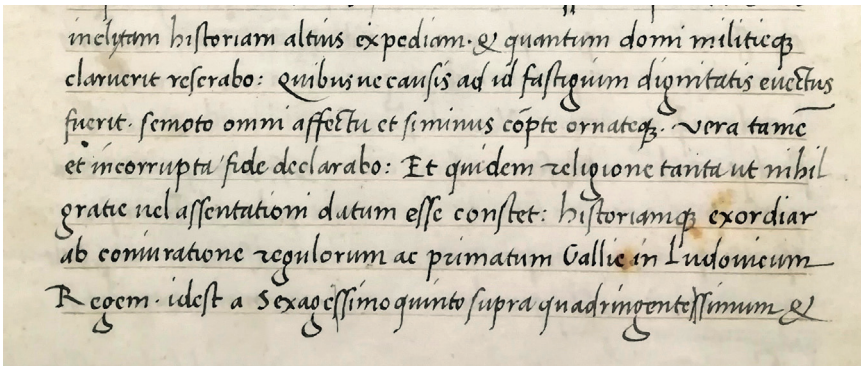 inclytam historiam altius expediam · & quantum domi militieqꝫ
claruerit reserabo: Quibusue causis ad id fastigium dignitatis euectus
fuerit · semoto omni affectu et si minus cōpte ornateqꝫ · vera tamē
et incorrupta fide declarabo: Et quidem religione tanta ut nihil
gratie uel assentationi datum esse constet: historiamqꝫ exordiar
ab coniuratione regulorum ac primatum Gallie in Ludouicum
Regem · idest a Sexagessimo quinto supra quadringentessimum &